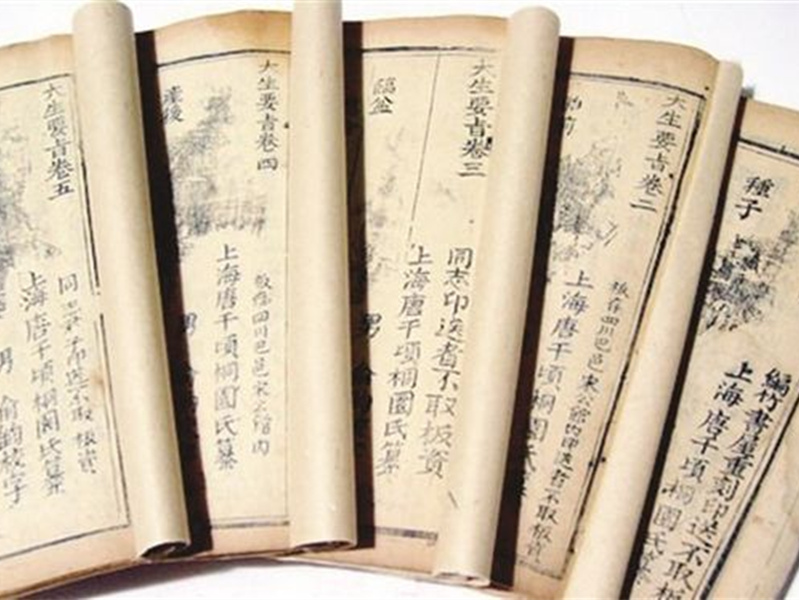 種子
竹書屋重刻印送不取板
上海唐千頃桐園氏纂
大生要旨卷二
前
板存四川巴邑宋公館内印送者不取板資
上海唐千頃桐園氏
大生要旨卷三
臨盆
同志印送者不取板資
上海唐千頃桐園氏纂
男
大生要旨卷四
產後
板存四川巴邑宋公館内
上海唐千頃桐園氏纂
男
大生要旨卷五
同印送不取板資
上海唐千頃桐園氏纂
男校字